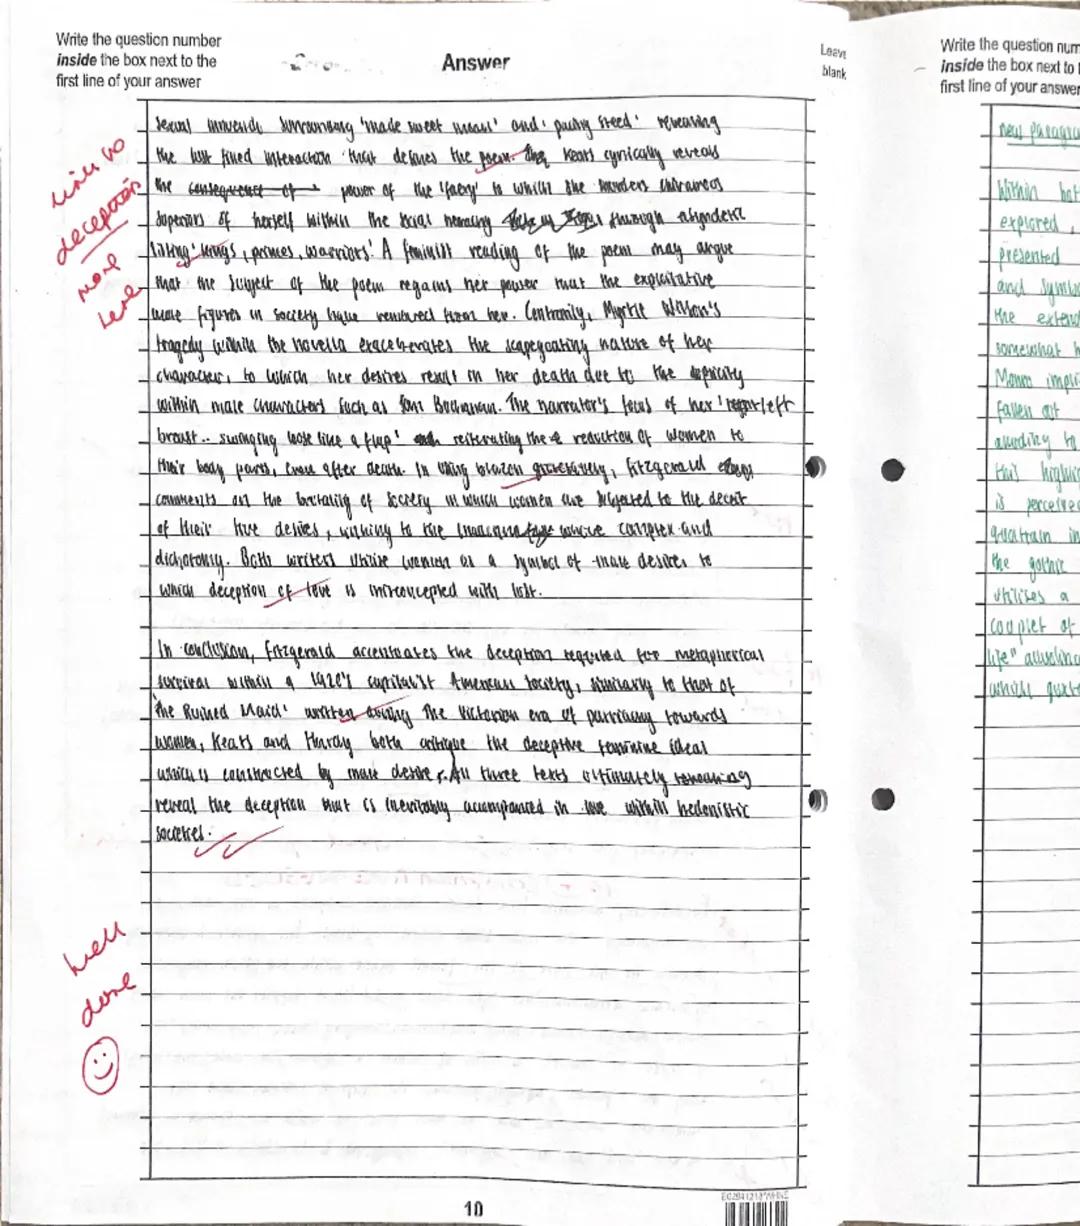 Write the question number
inside the box next to the
first line of your answer
Answer
Leave
blank
sexual innuendo surrounding 'made sweet moan' and 'pacing steed' revealing
the lust fixed interaction that defines the poem. Keats cynically reveals
the consequence of power of the 'faery' to which she murders
superiors of herself within the social through
listing 'kings, princes, warriors'. A feminist reading of the poem may argue
that the subject of the poem regains her power that the exploitative
male figures in society have removed from her. Contrarily, Myrtle Wilson's
tragedy within the novella exacerbates the scapegoating nature of her
character, to which her desires result in her death due to the duplicity
within male characters such as Tom Buchanan. The narrator's focus of her left
breast.. swinging lose like a flap' reiterating the reduction of women to
their body parts, even after death. In using brazen Fitzgerald
comments on the brutality of society in which women are subjected to the deceit
of their true desires, linking to the whore complex and
dichotomy. Both writers utilise women as a symbol of male desires to
which deception of love is misconcepted with lust.
In conclusion, Fitzgerald accentuates the deception required for metaphorical
survival within a 1920's capitalist American society, similarly to that of
'The Ruined Maid' written during The Victorian era of towards
women, Keats and Hardy both critique the deceptive feminine ideal
which is constructed by male desire. All three texts ultimately
reveal the deception that is inevitably accompanied in love within hedonistic
societies.
links to
deception
more
here
well
done
10
Write the question num
inside the box next to
first line of your answer
new paragra
Within bot
explored,
presented
and symbo
the extend
somewhat h
Moon impli
fallen
alluding to
this highli
is perceive
quatrain in
the gothic
utilises a
couplet of
life"
whilst